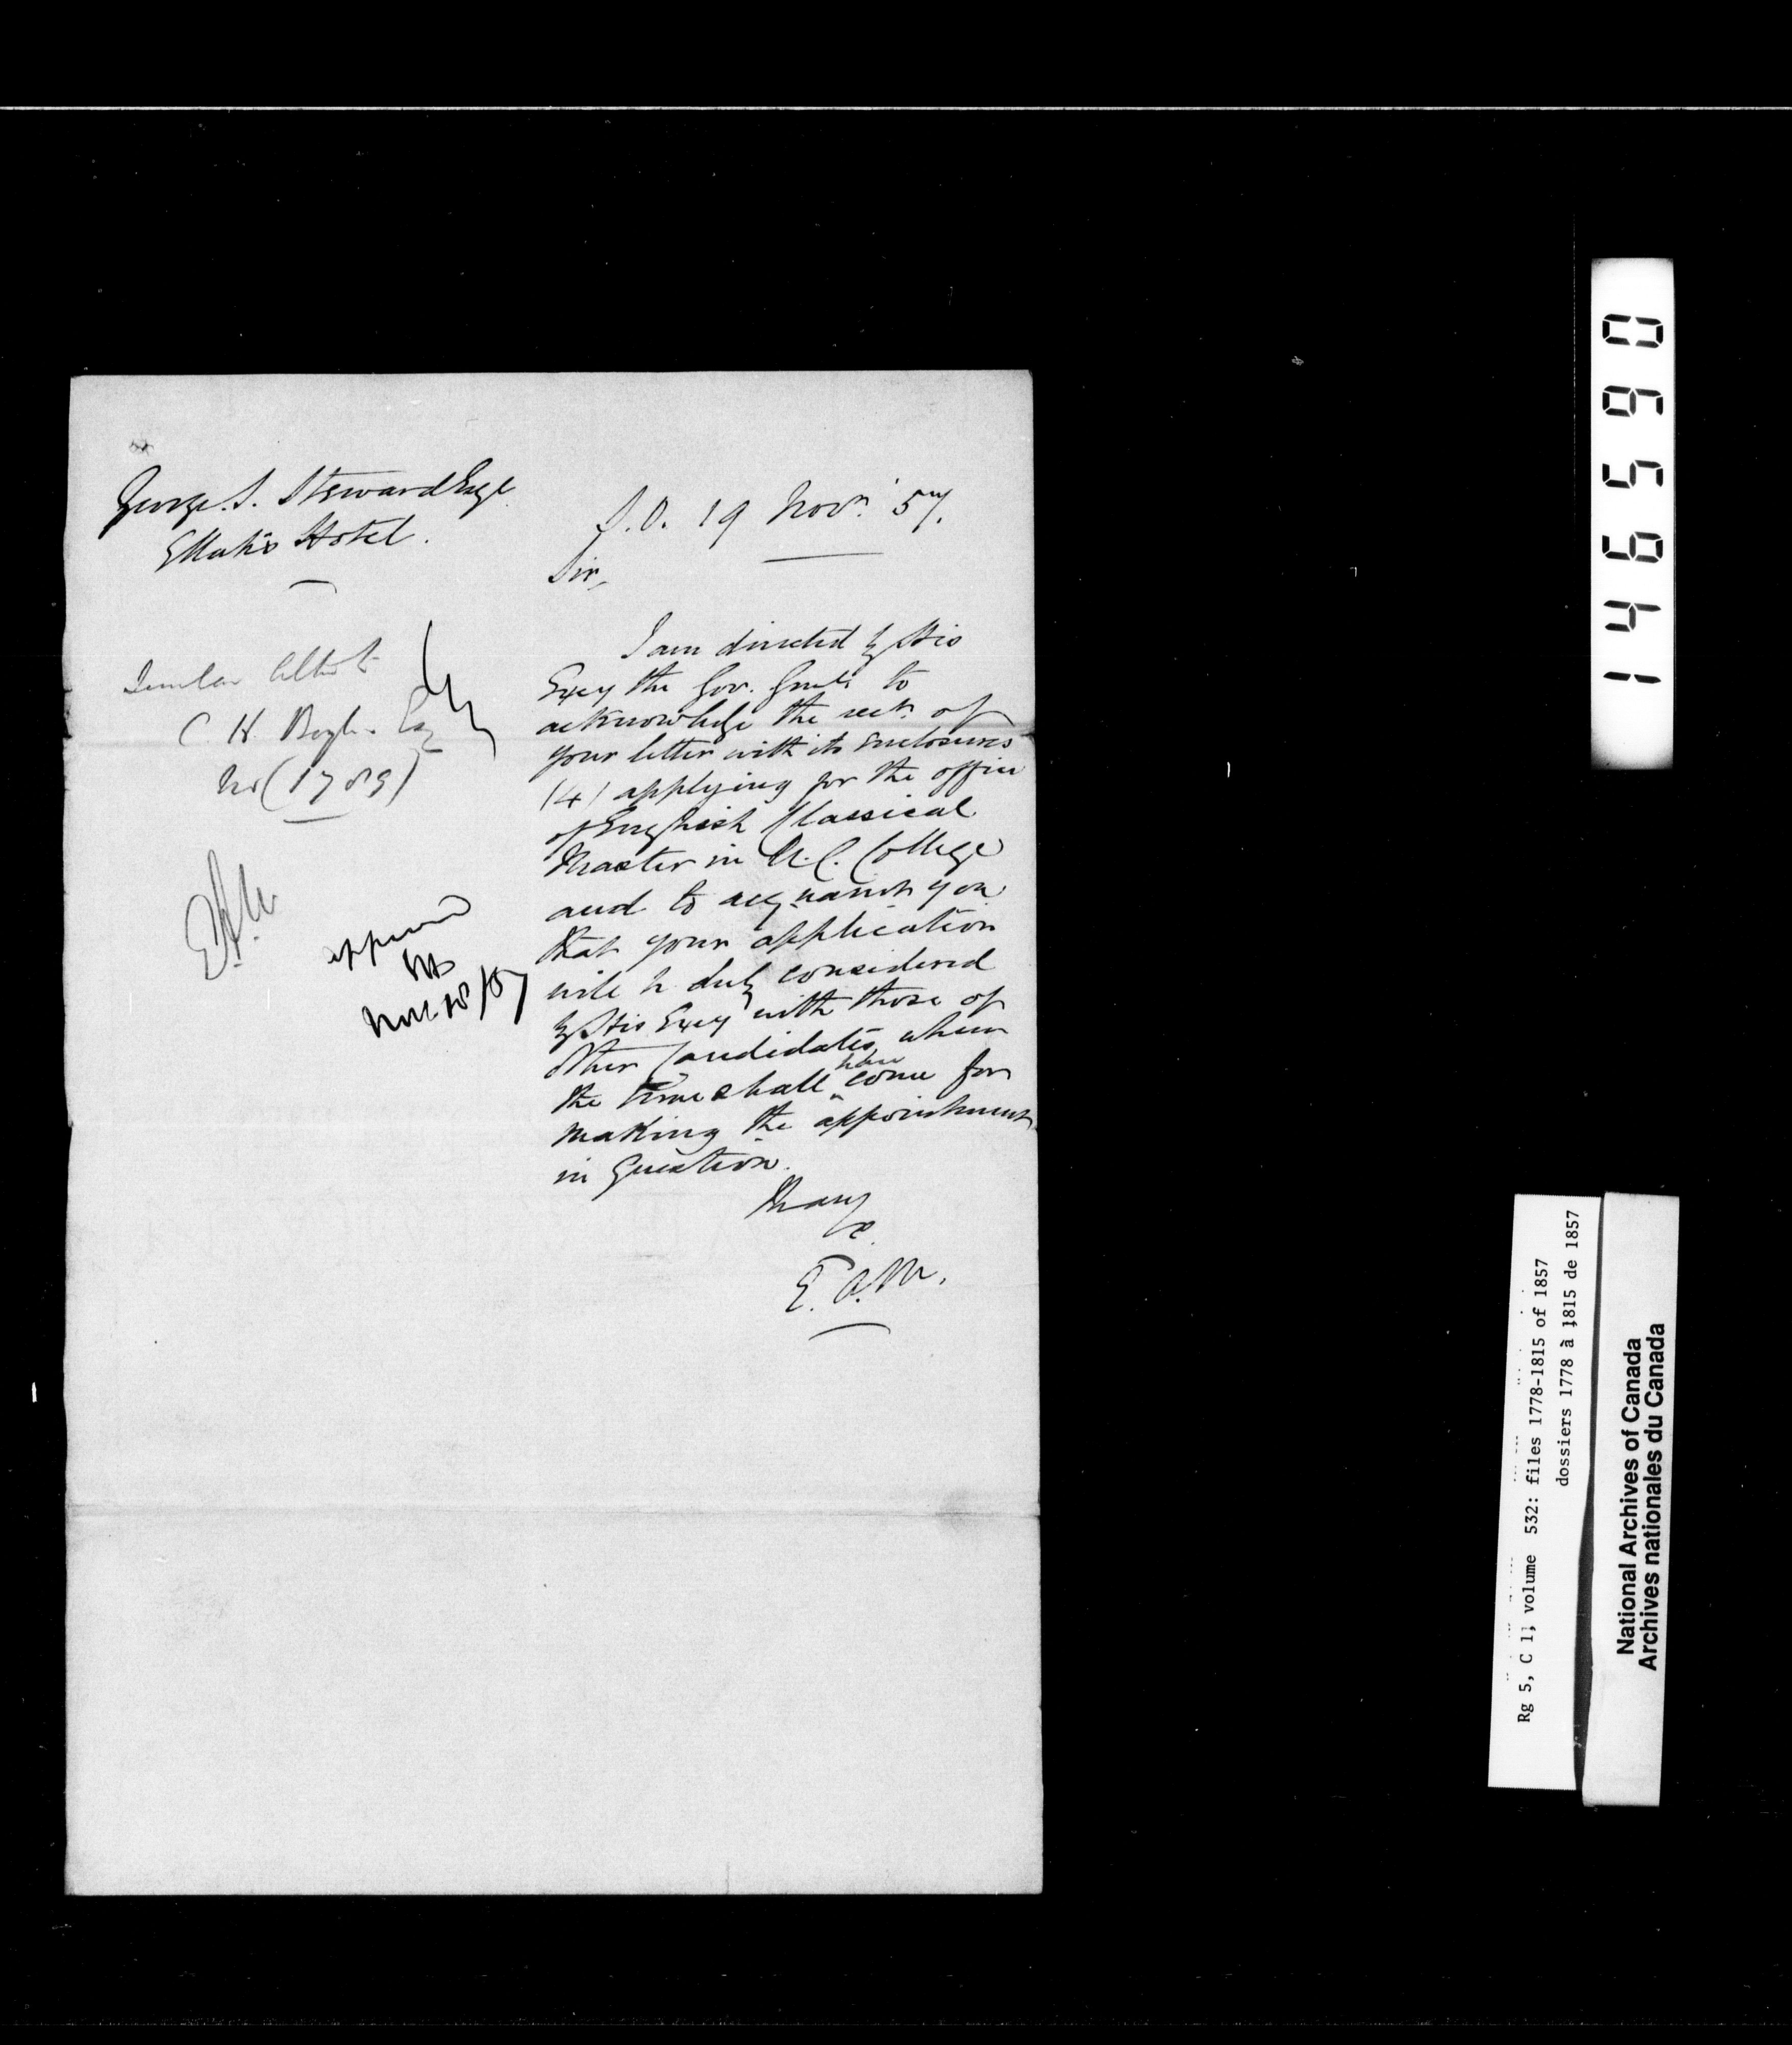 George. S. Steward Esqe
Hotel.
S.O. 19 Novr. 57.
Sir,
I am directed by His
Excy the Gov. Genl. to
acknowledge the rect. of
your letter with its enclosures
(4) applying for the office
of English Classical
Master in U.C. College
and to acquaint you
that your application
will be duly considered
by His Excy with those of
other Candidates, when
the time shall have come for
making the appointment
in Question.
I have
&.
E. A. M.
Similar letter to
C. H. Esq
No (1789)
E. A. M
approved
Nov 18/57
146590
Rg 5, C 1, volume 532: files 1778-1815 of 1857
dossiers 1778 à 1815 de 1857
National Archives of Canada
Archives nationales du Canada